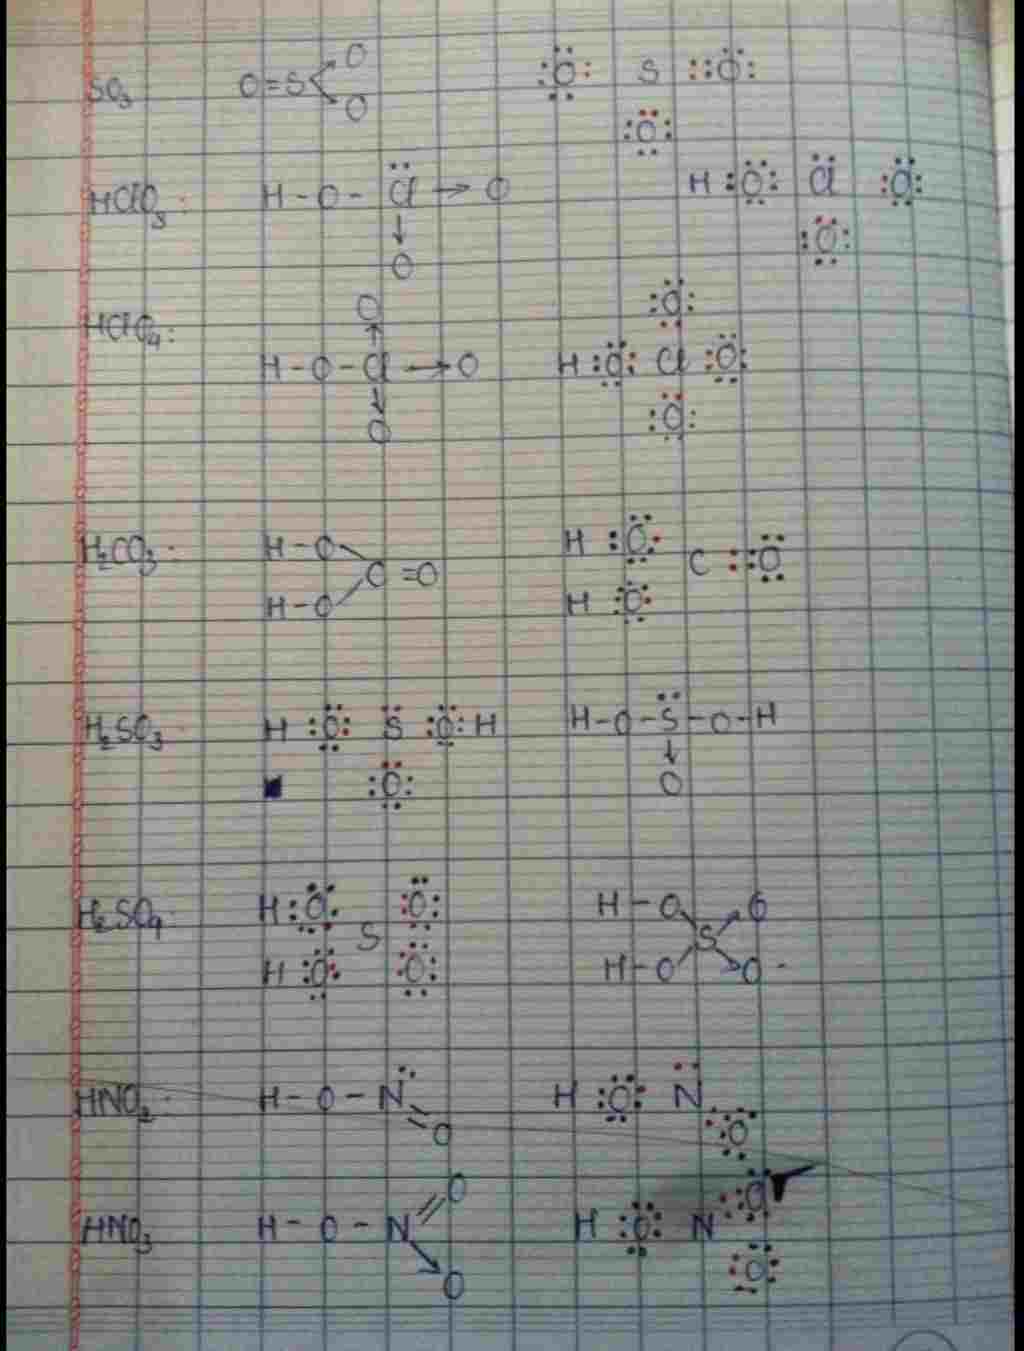 SO₃ O=S O O :O: S ::O: :O:
HClO₃: H-O-Cl→O ↓ O H :O: Cl :O: :O:
HClO₄: O ↑ H-O-Cl→O ↓ O :O: H :O: Cl :O: :O:
H₂CO₃: H-O H-O C=O H :O: H :O: C ::O:
H₂SO₃ H :O: S :O: H :O: H-O-S-O-H ↓ O
H₂SO₄: H :O: :O: S H :O: :O: H-O O S H-O O
HNO₂: H-O-N=O H :O: N ::O:
HNO₃ H-O-N=O O H :O: N ::O: :O: